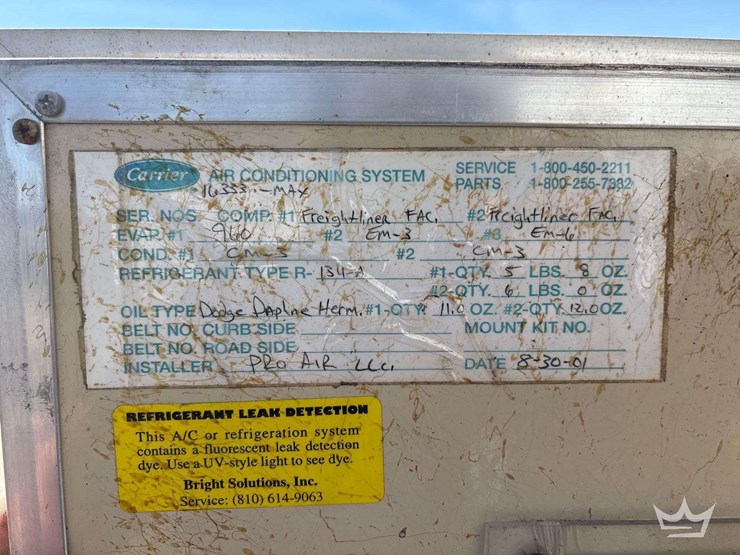 Carrier AIR CONDITIONING SYSTEM SERVICE 1-800-450-2211
16333-MAX PARTS 1-800-255-7382
SER. NOS. COMP. #1 Freightliner FAC. #2 Freightliner FAC.
EVAP. #1 960 #2 EM-3 #3 EM-6
COND. #1 CM-3 #2 CM-3
REFRIGERANT TYPE R- 134-A #1-QTY. 5 LBS. 8 OZ.
#2-QTY. 6 LBS. 0 OZ.
OIL TYPE Dodge Herm. #1-QTY. 11.0 OZ. #2-QTY. 12.0 OZ.
BELT NO. CURB SIDE MOUNT KIT NO.
BELT NO. ROAD SIDE
INSTALLER PRO AIR LLC. DATE 8-30-01
REFRIGERANT LEAK DETECTION
This A/C or refrigeration system
contains a fluorescent leak detection
dye. Use a UV-style light to see dye.
Bright Solutions, Inc.
Service: (810) 614-9063